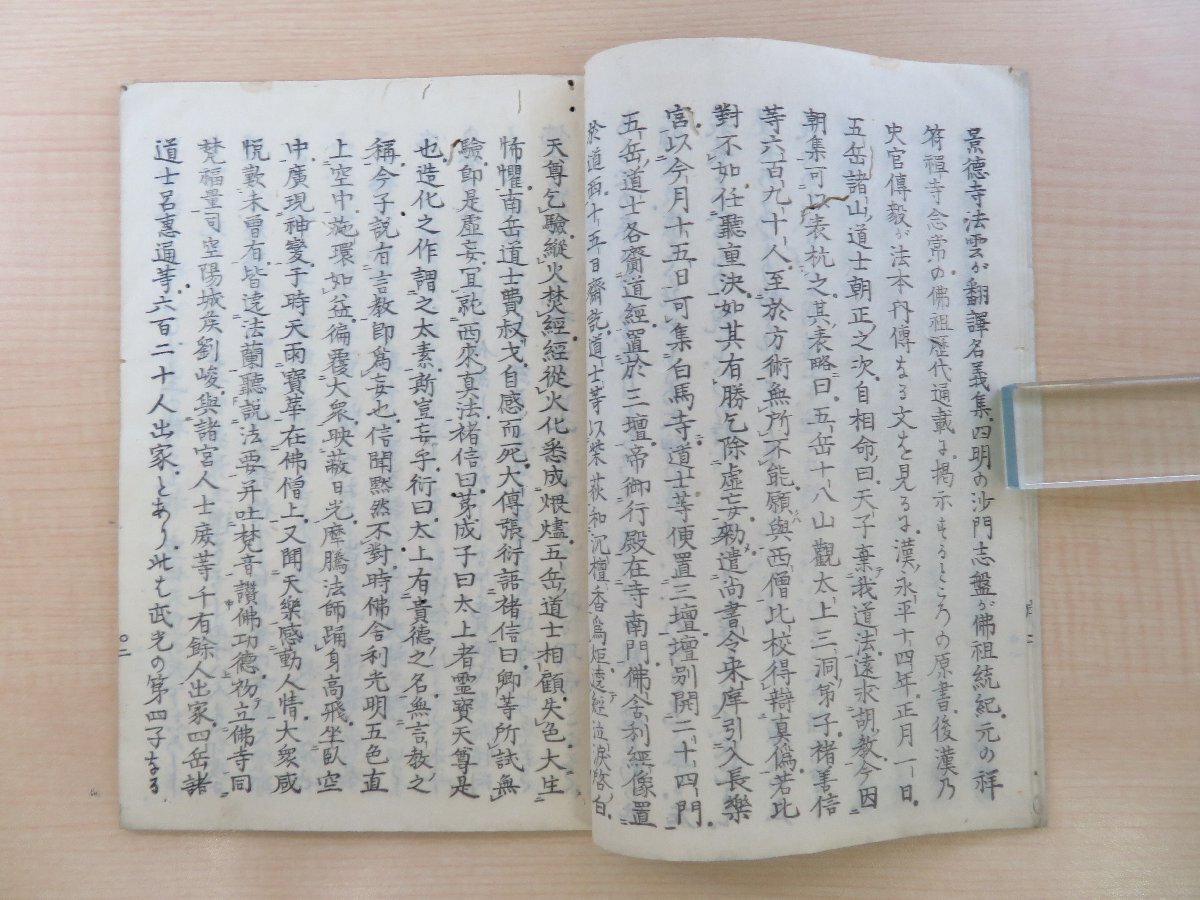 景德寺法雲ガ翻譯名義集四明の沙門志盤ガ佛祖統紀元の祥
符禪寺念常の佛祖歷代通載に掲示するところの原書後漢乃
史官傅毅ガ法本内傳なる文を見るに漢永平十四年正月一日
五岳諸山道士朝正之次自相命曰天子棄我道法遠求胡教今因
朝集可以表抗之其表略曰五岳十八山觀太上三洞弟子褚善信
等六百九十人至於方術無所不能願與西僧比校得辯真偽若比
對不如任聽重決如其有勝乞除虛妄勅遣尚書令来庠引入長樂
宮以今月十五日可集白馬寺道士等便置三壇壇別開二十四門
五岳道士各賷道經置於三壇帝御行殿在寺南門佛舍利經像置
於道西十五日齋訖道士等以柴荻和沉檀香爲炬遶經泣淚啓白
天尊乞驗縱火焚經經從火化悉成煨燼五岳道士相顧失色大生
怖懼南岳道士費叔才自感而死大傅張衍語褚信曰卿等所試無
驗即是虛妄宜就西來真法褚信曰茅成子曰太上者靈寶天尊是
也造化之作謂之太素斯豈妄乎衍曰太上有貴德之名無言教之
稱今子説有言教即爲妄也信聞默然不對時佛舍利光明五色直
上空中施環如盆徧覆大衆映蔽日光摩騰法師踊身高飛坐臥空
中廣現神變于時天雨寶華在佛僧上又聞天樂感動人情大衆咸
悦歎未曾有皆遶法蘭聽説法要并吐梵音讚佛功德初立佛寺同
梵福量司空陽城侯劉峻與諸官人士庶等千有餘人出家四岳諸
道士呂惠通等六百二十人出家とあり此も武光の第四子なる